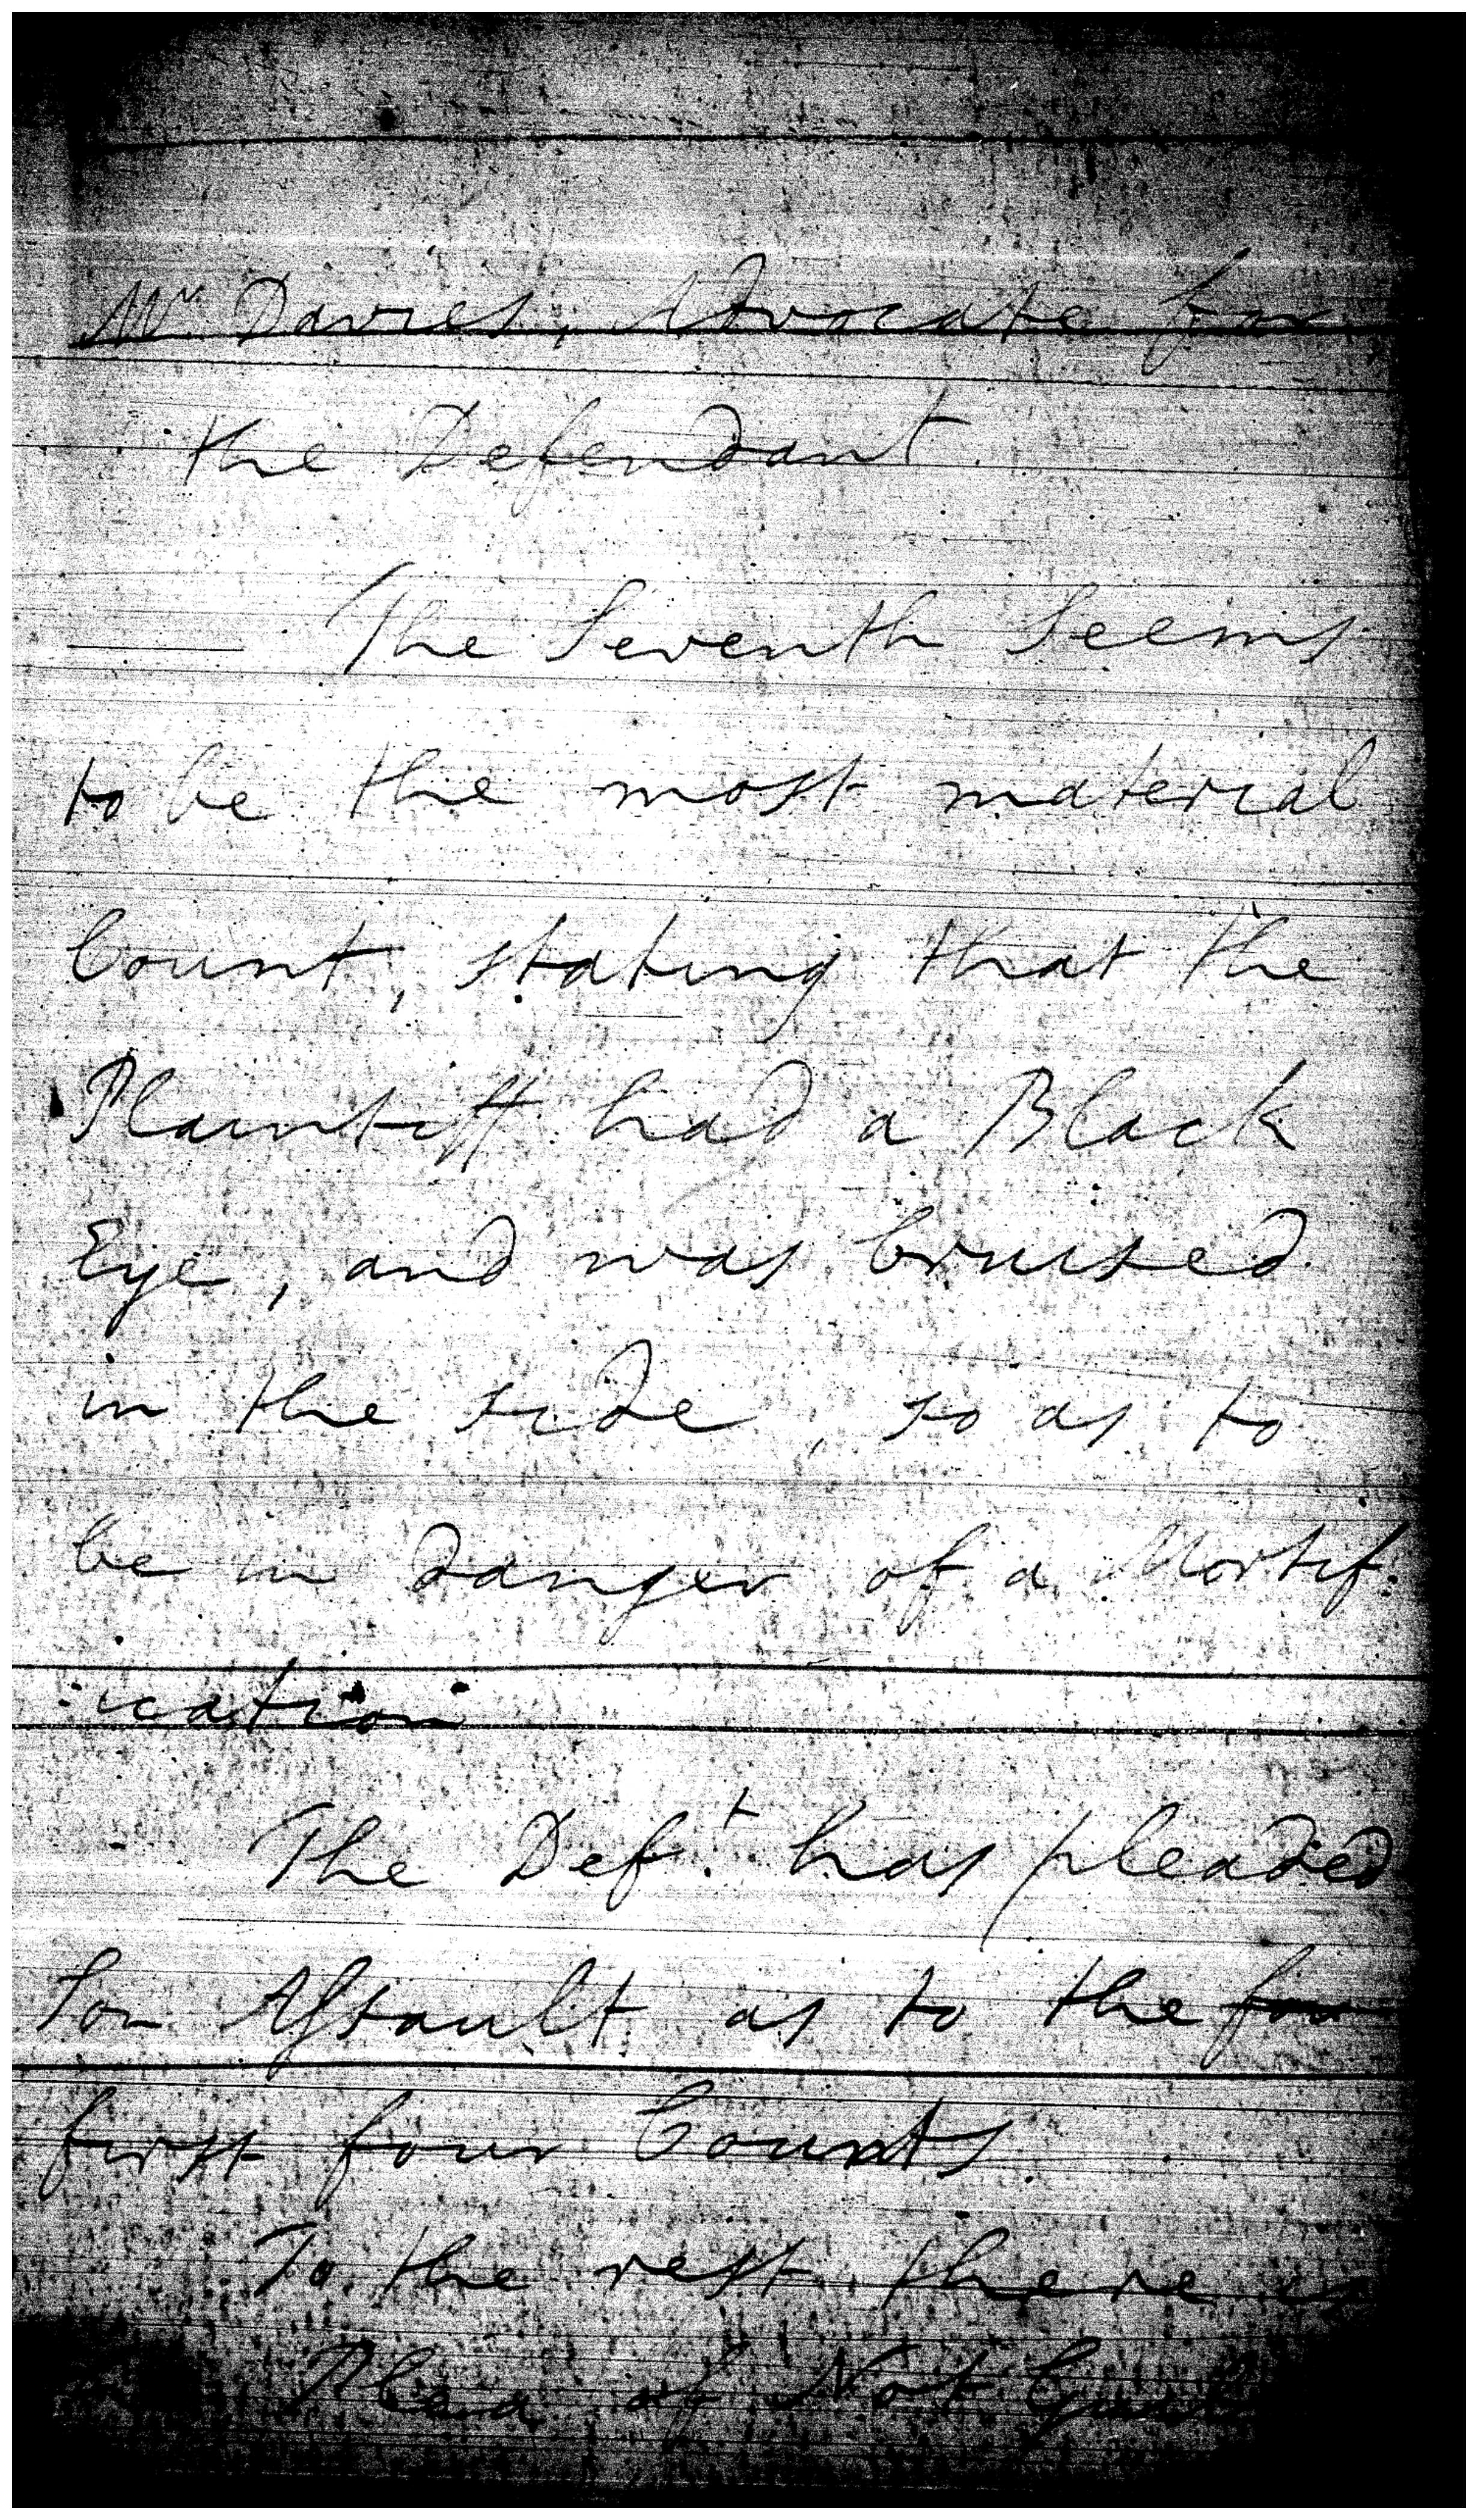 Mr Davies, Advocate for
the Defendant
The Seventh Seems
to be the most material
Count, stating that the
Plaintiff had a Black
Eye, and was bruised
in the side, so as to
be in danger of a Mortif:
:ication
The Deft. has pleaded
Son Assault as to the fou
first four Counts.
To the rest there is
Plea of Not